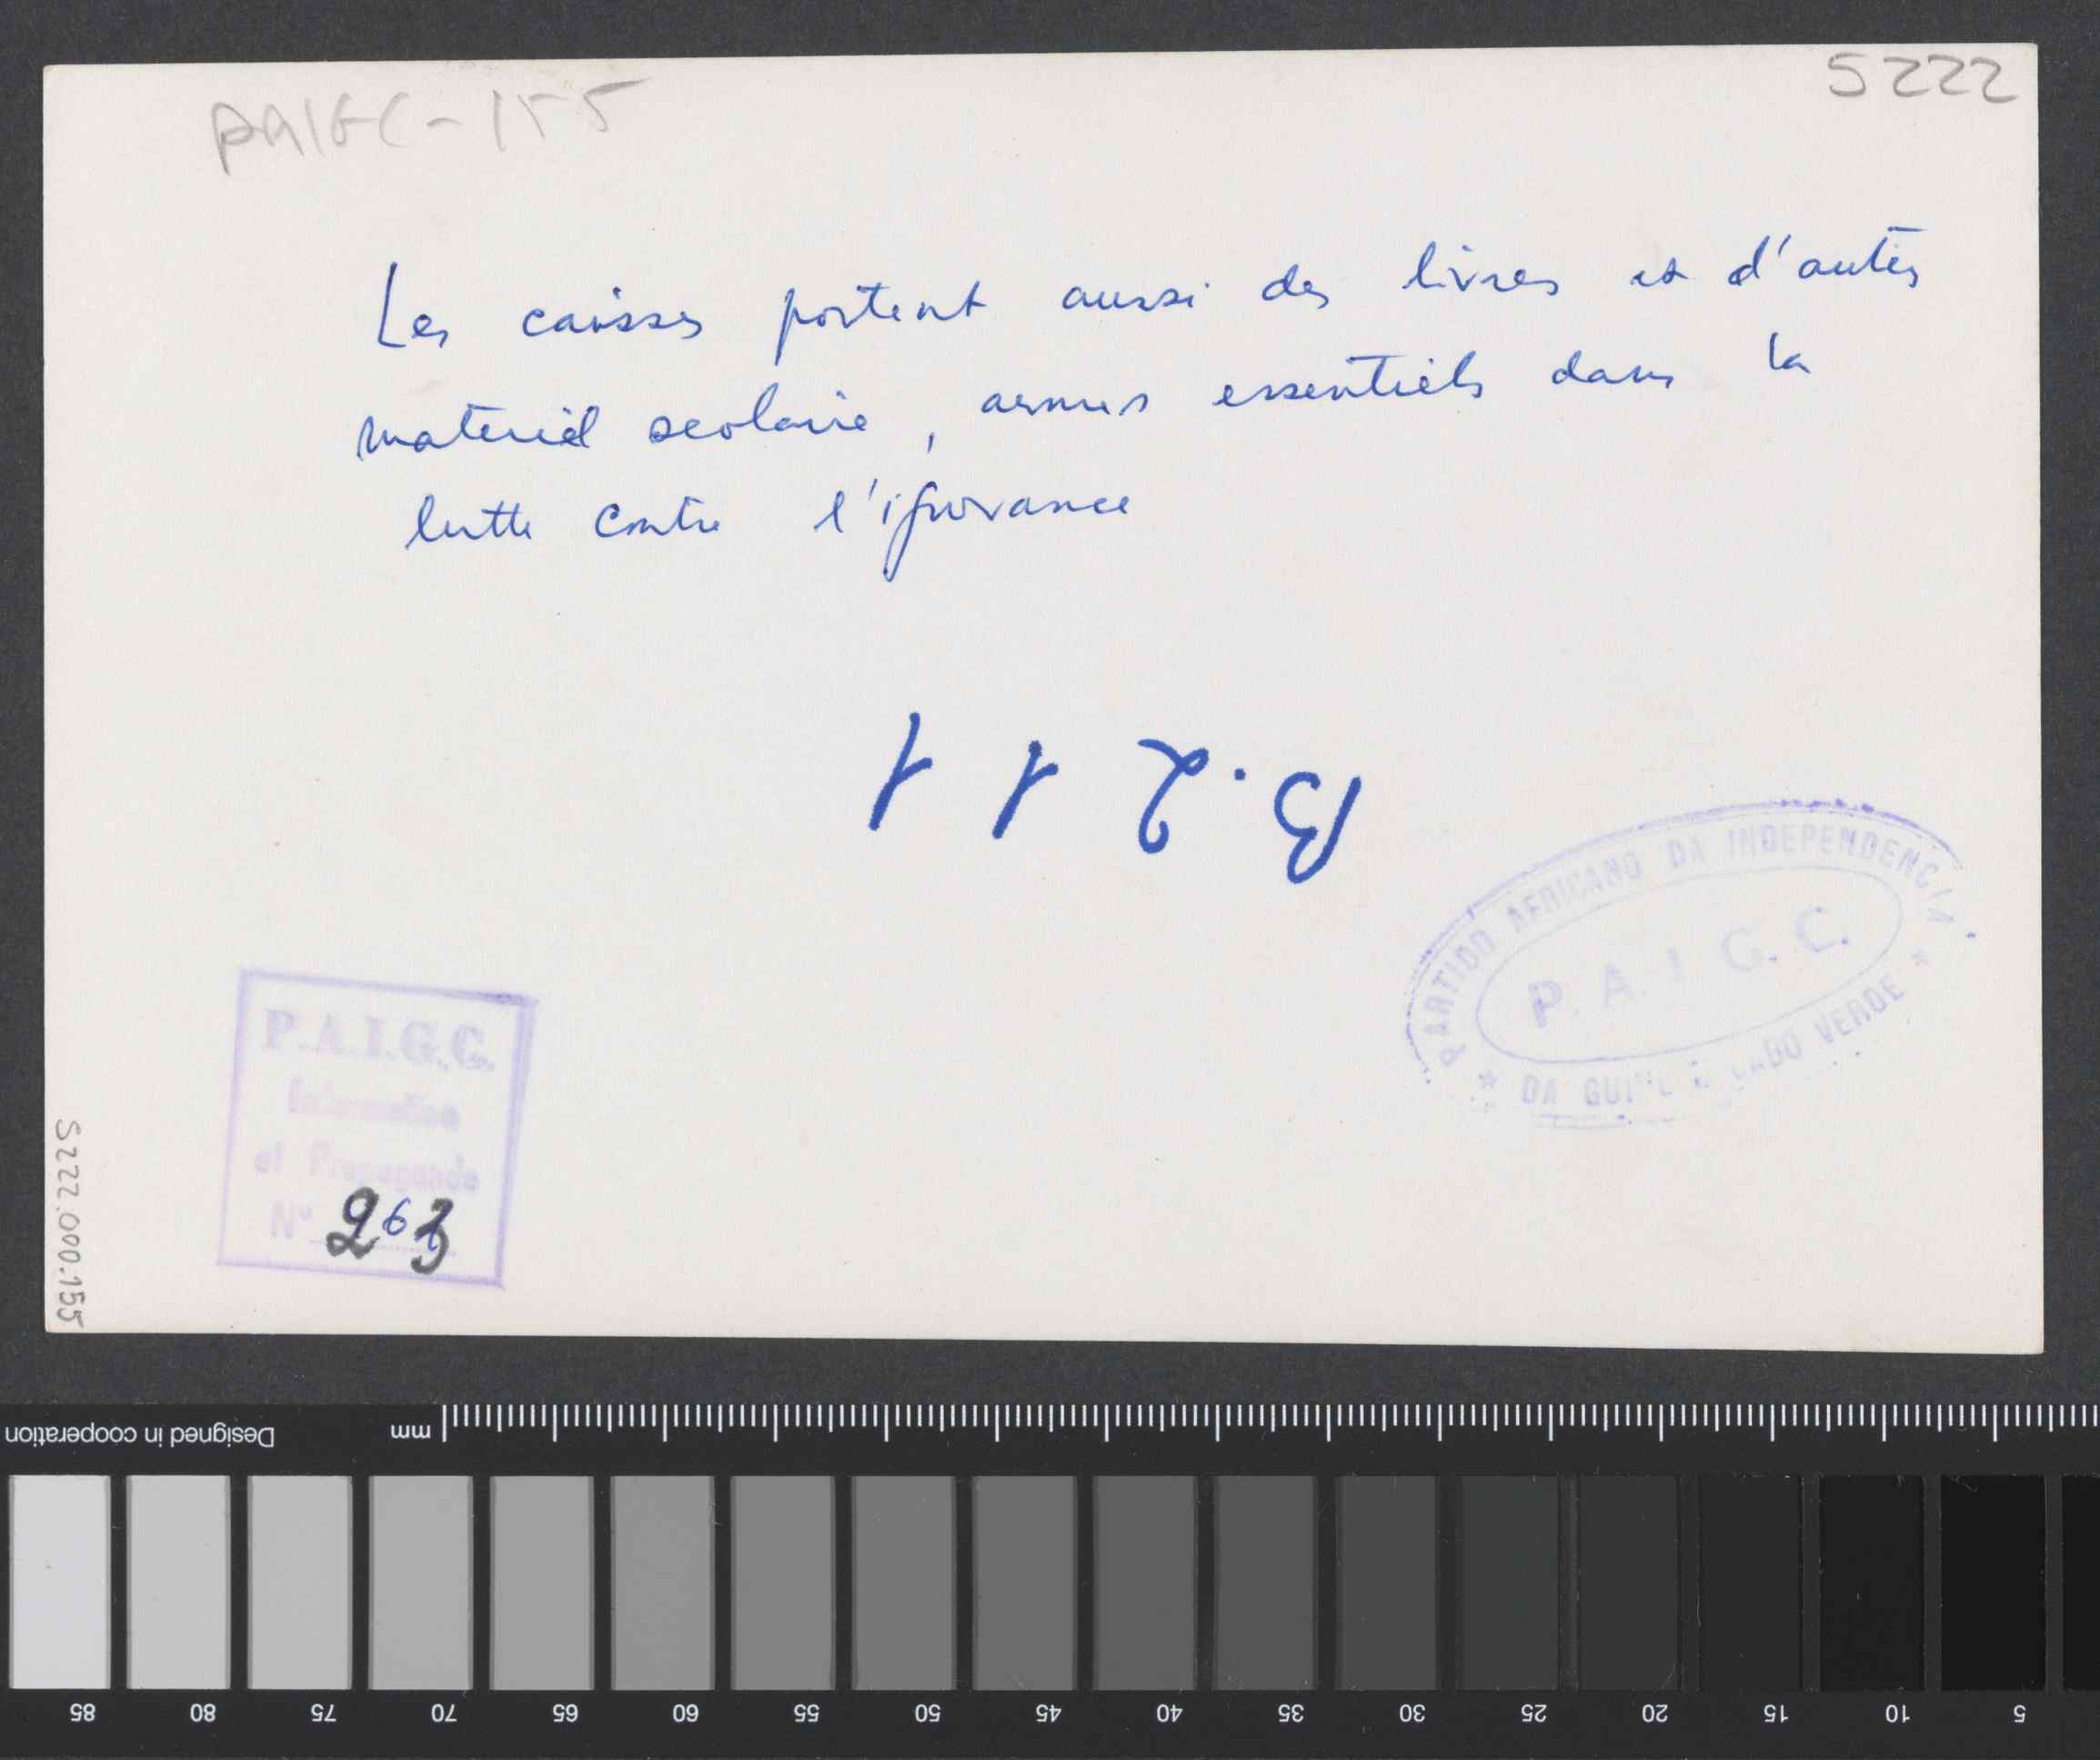 PAIGC-155
5222
Les caisses portent aussi des livres et d'autres
materiel scolaire, armes essentiels dans la
lutte contre l'ignorance
B.211
PARTIDO AFRICANO DA INDEPENDENCIA
P. A. I. G. C.
* DA GUINE E CABO VERDE *
P.A.I.G.C.
Information
et Propagande
Nº 263
S222.000.155
Designed in cooperation
mm
85 80 75 70 65 60 55 50 45 40 35 30 25 20 15 10 5